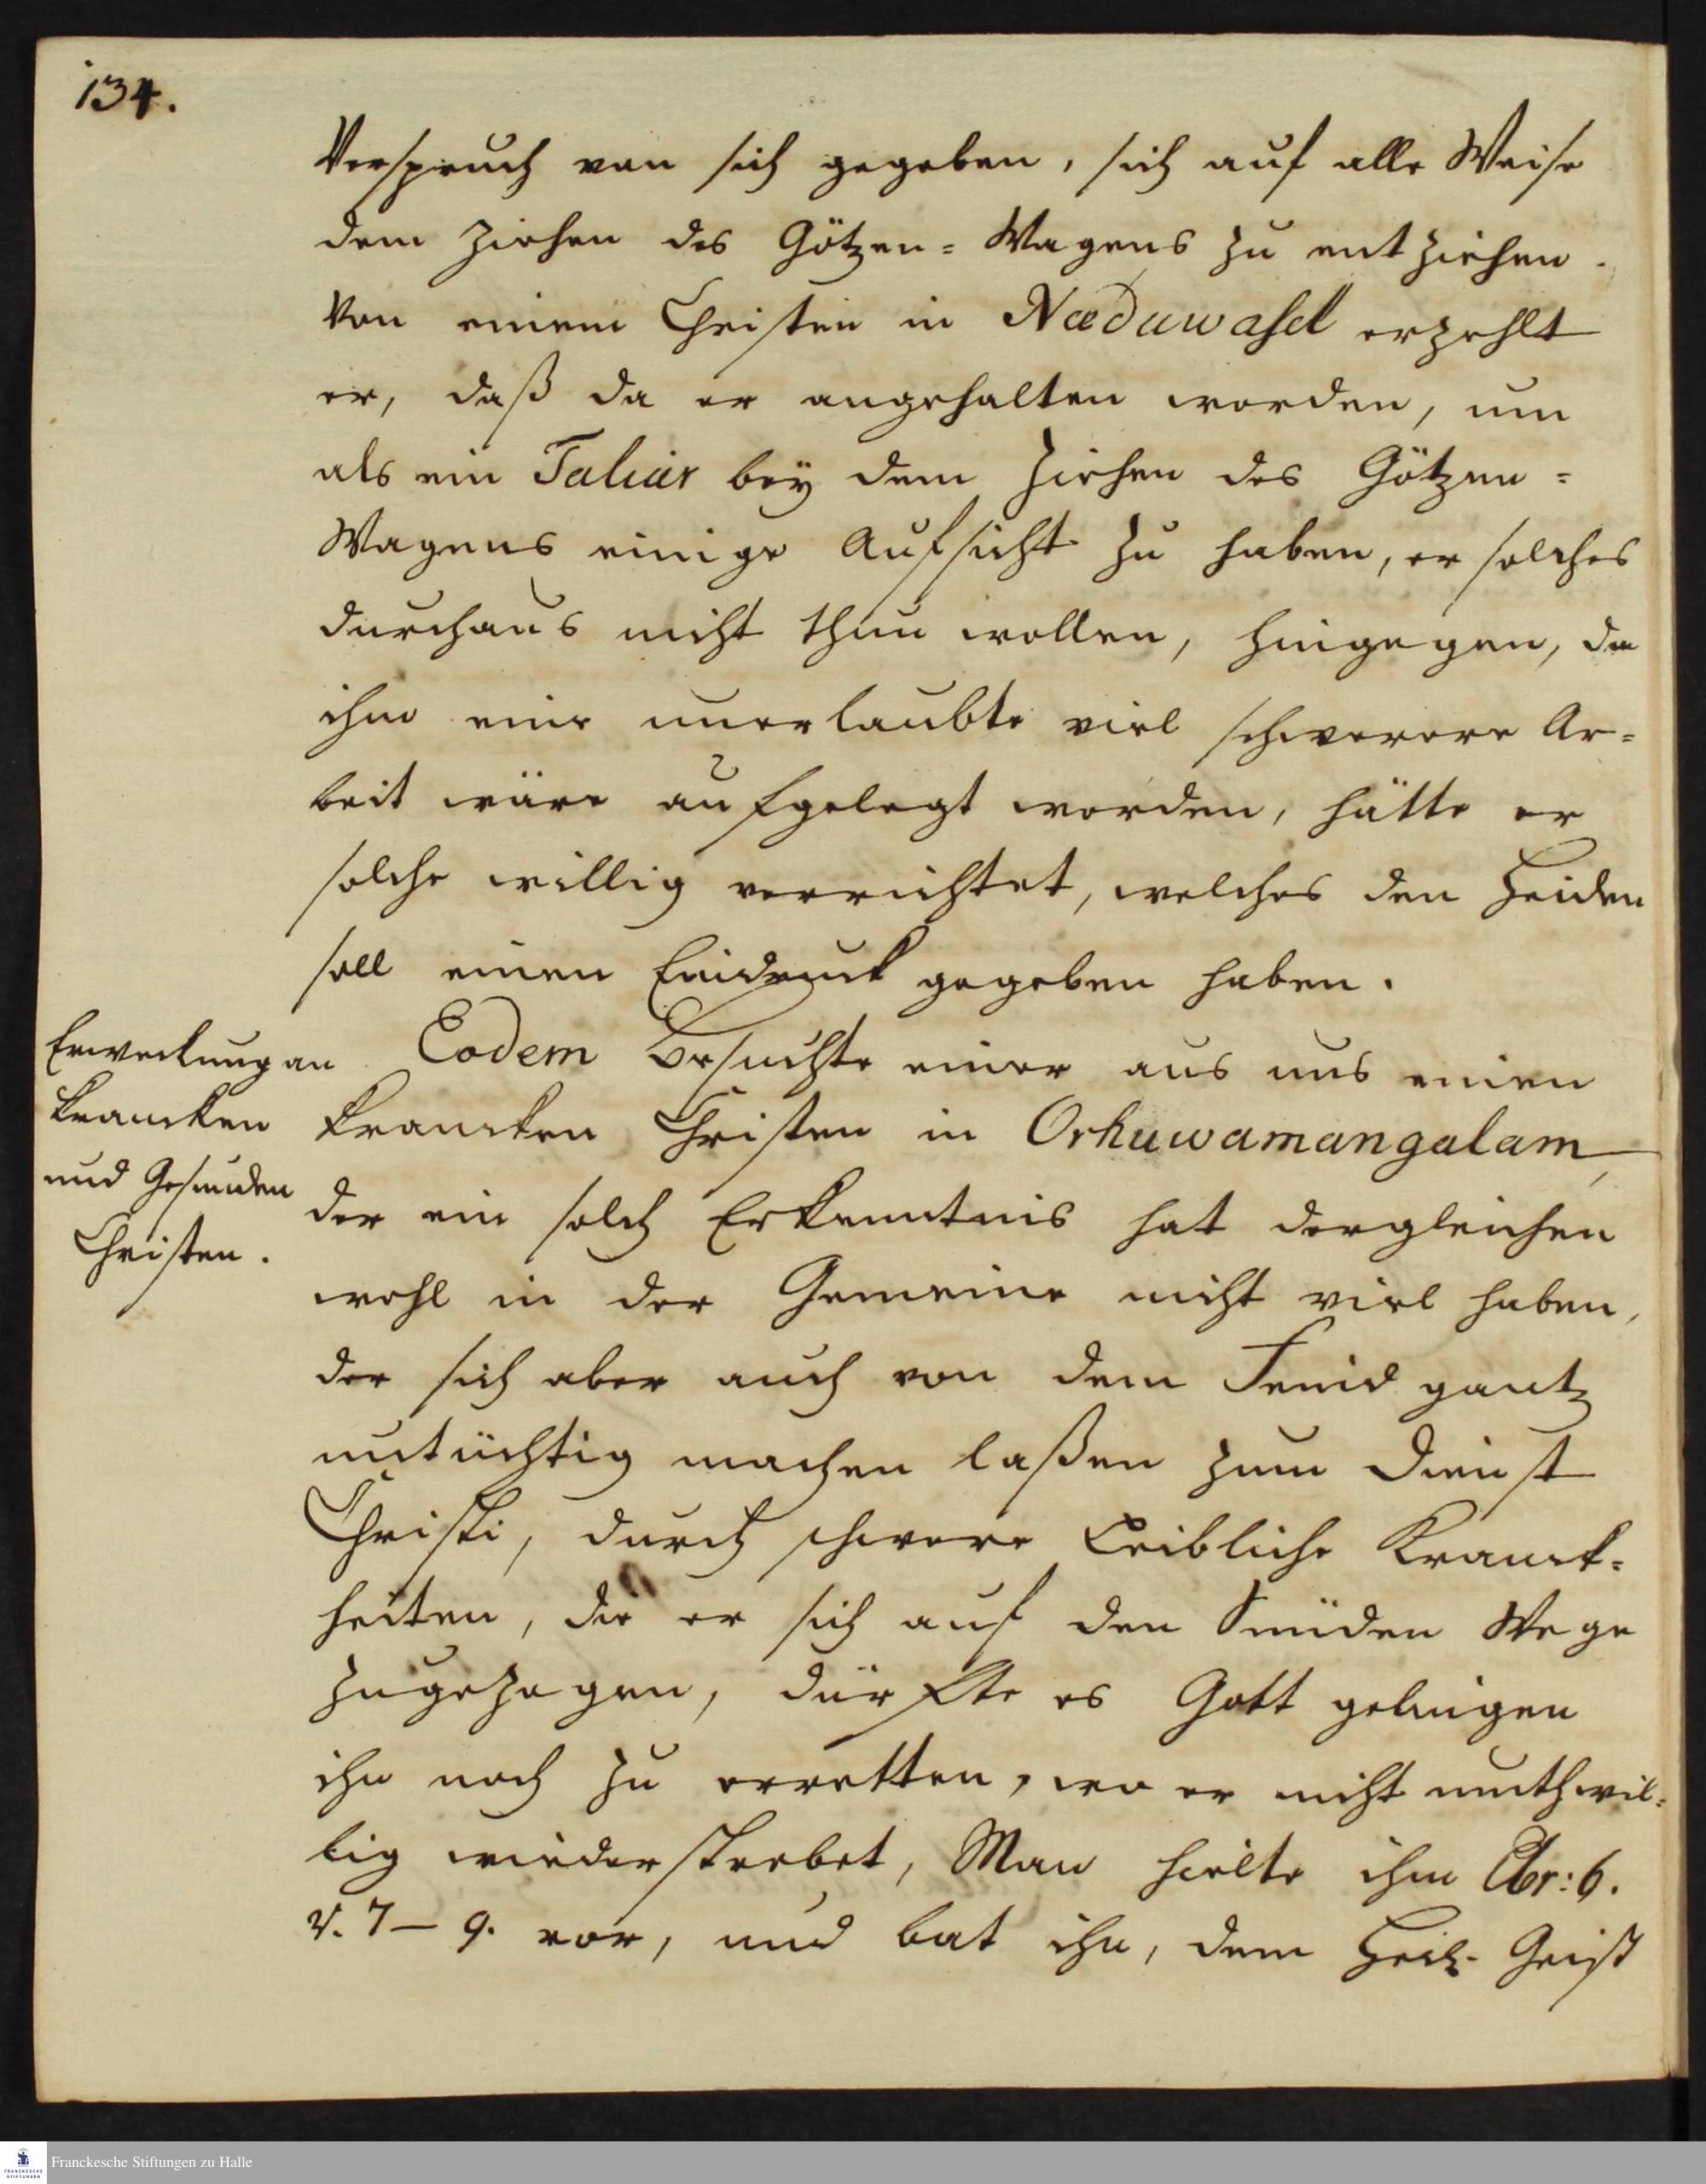 134.
Verspruch von sich gegeben, sich auf alle Weise
dem Ziehen des Götzen=Wagens zu entziehen.
Von einem Christen in Næduwasel erzehlt
er, daß da er angehalten worden, um
als ein Taliar bey dem Ziehen des Götzen=
Wagens einige Aufsicht zu haben, er solches
durchaus nicht thun wollen, hingegen, da
ihm eine unerlaubte viel schwerere Ar=
beit wäre aufgelegt worden, hätte er
solche willig verrichtet, welches den Heiden
soll einen Eindruck gegeben haben.
Erweckung an
Krancken
und Gesunden
Christen.
Eodem besuchte einer aus uns einen
Krancken Christen in Orkuwamangalam,
der ein solch Erkenntnis hat dergleichen
wohl in der Gemeine nicht viel haben,
der sich aber auch von dem Feind gantz
untüchtig machen laßen zum Dienst
Christi, durch schwere Leibliche Kranck=
heiten, die er sich auf den Sünden Wege
zugezogen, dürfte es Gott gelingen
ihn noch zu erretten, wo er nicht muthwil=
lig wiederstrebet, Man hielte ihm Ebr: 6.
v. 7 – 9. vor, und bat ihn, dem Heil. Geist
Franckesche Stiftungen zu Halle